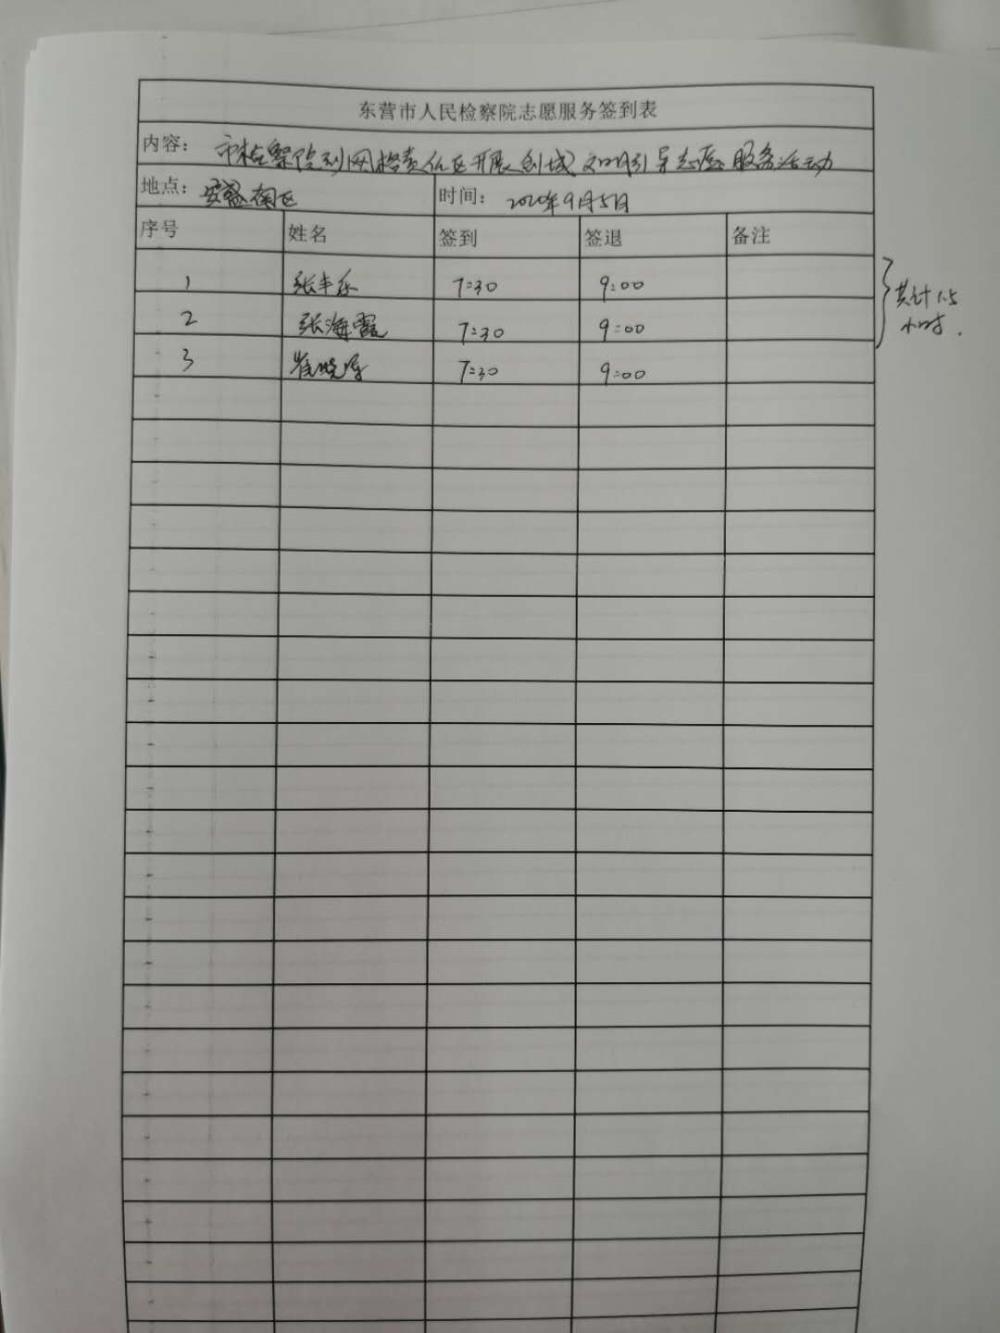 东营市人民检察院志愿服务签到表
内容: 市检察院到网格责任区开展创城文明引导志愿服务活动
地点: 安盛南区 时间: 2020年9月5日
序号 姓名 签到 签退 备注
1 张丰乐 7:30 9:00
2 张海霞 7:30 9:00
3 崔晓 7:30 9:00
共计1.5
小时.